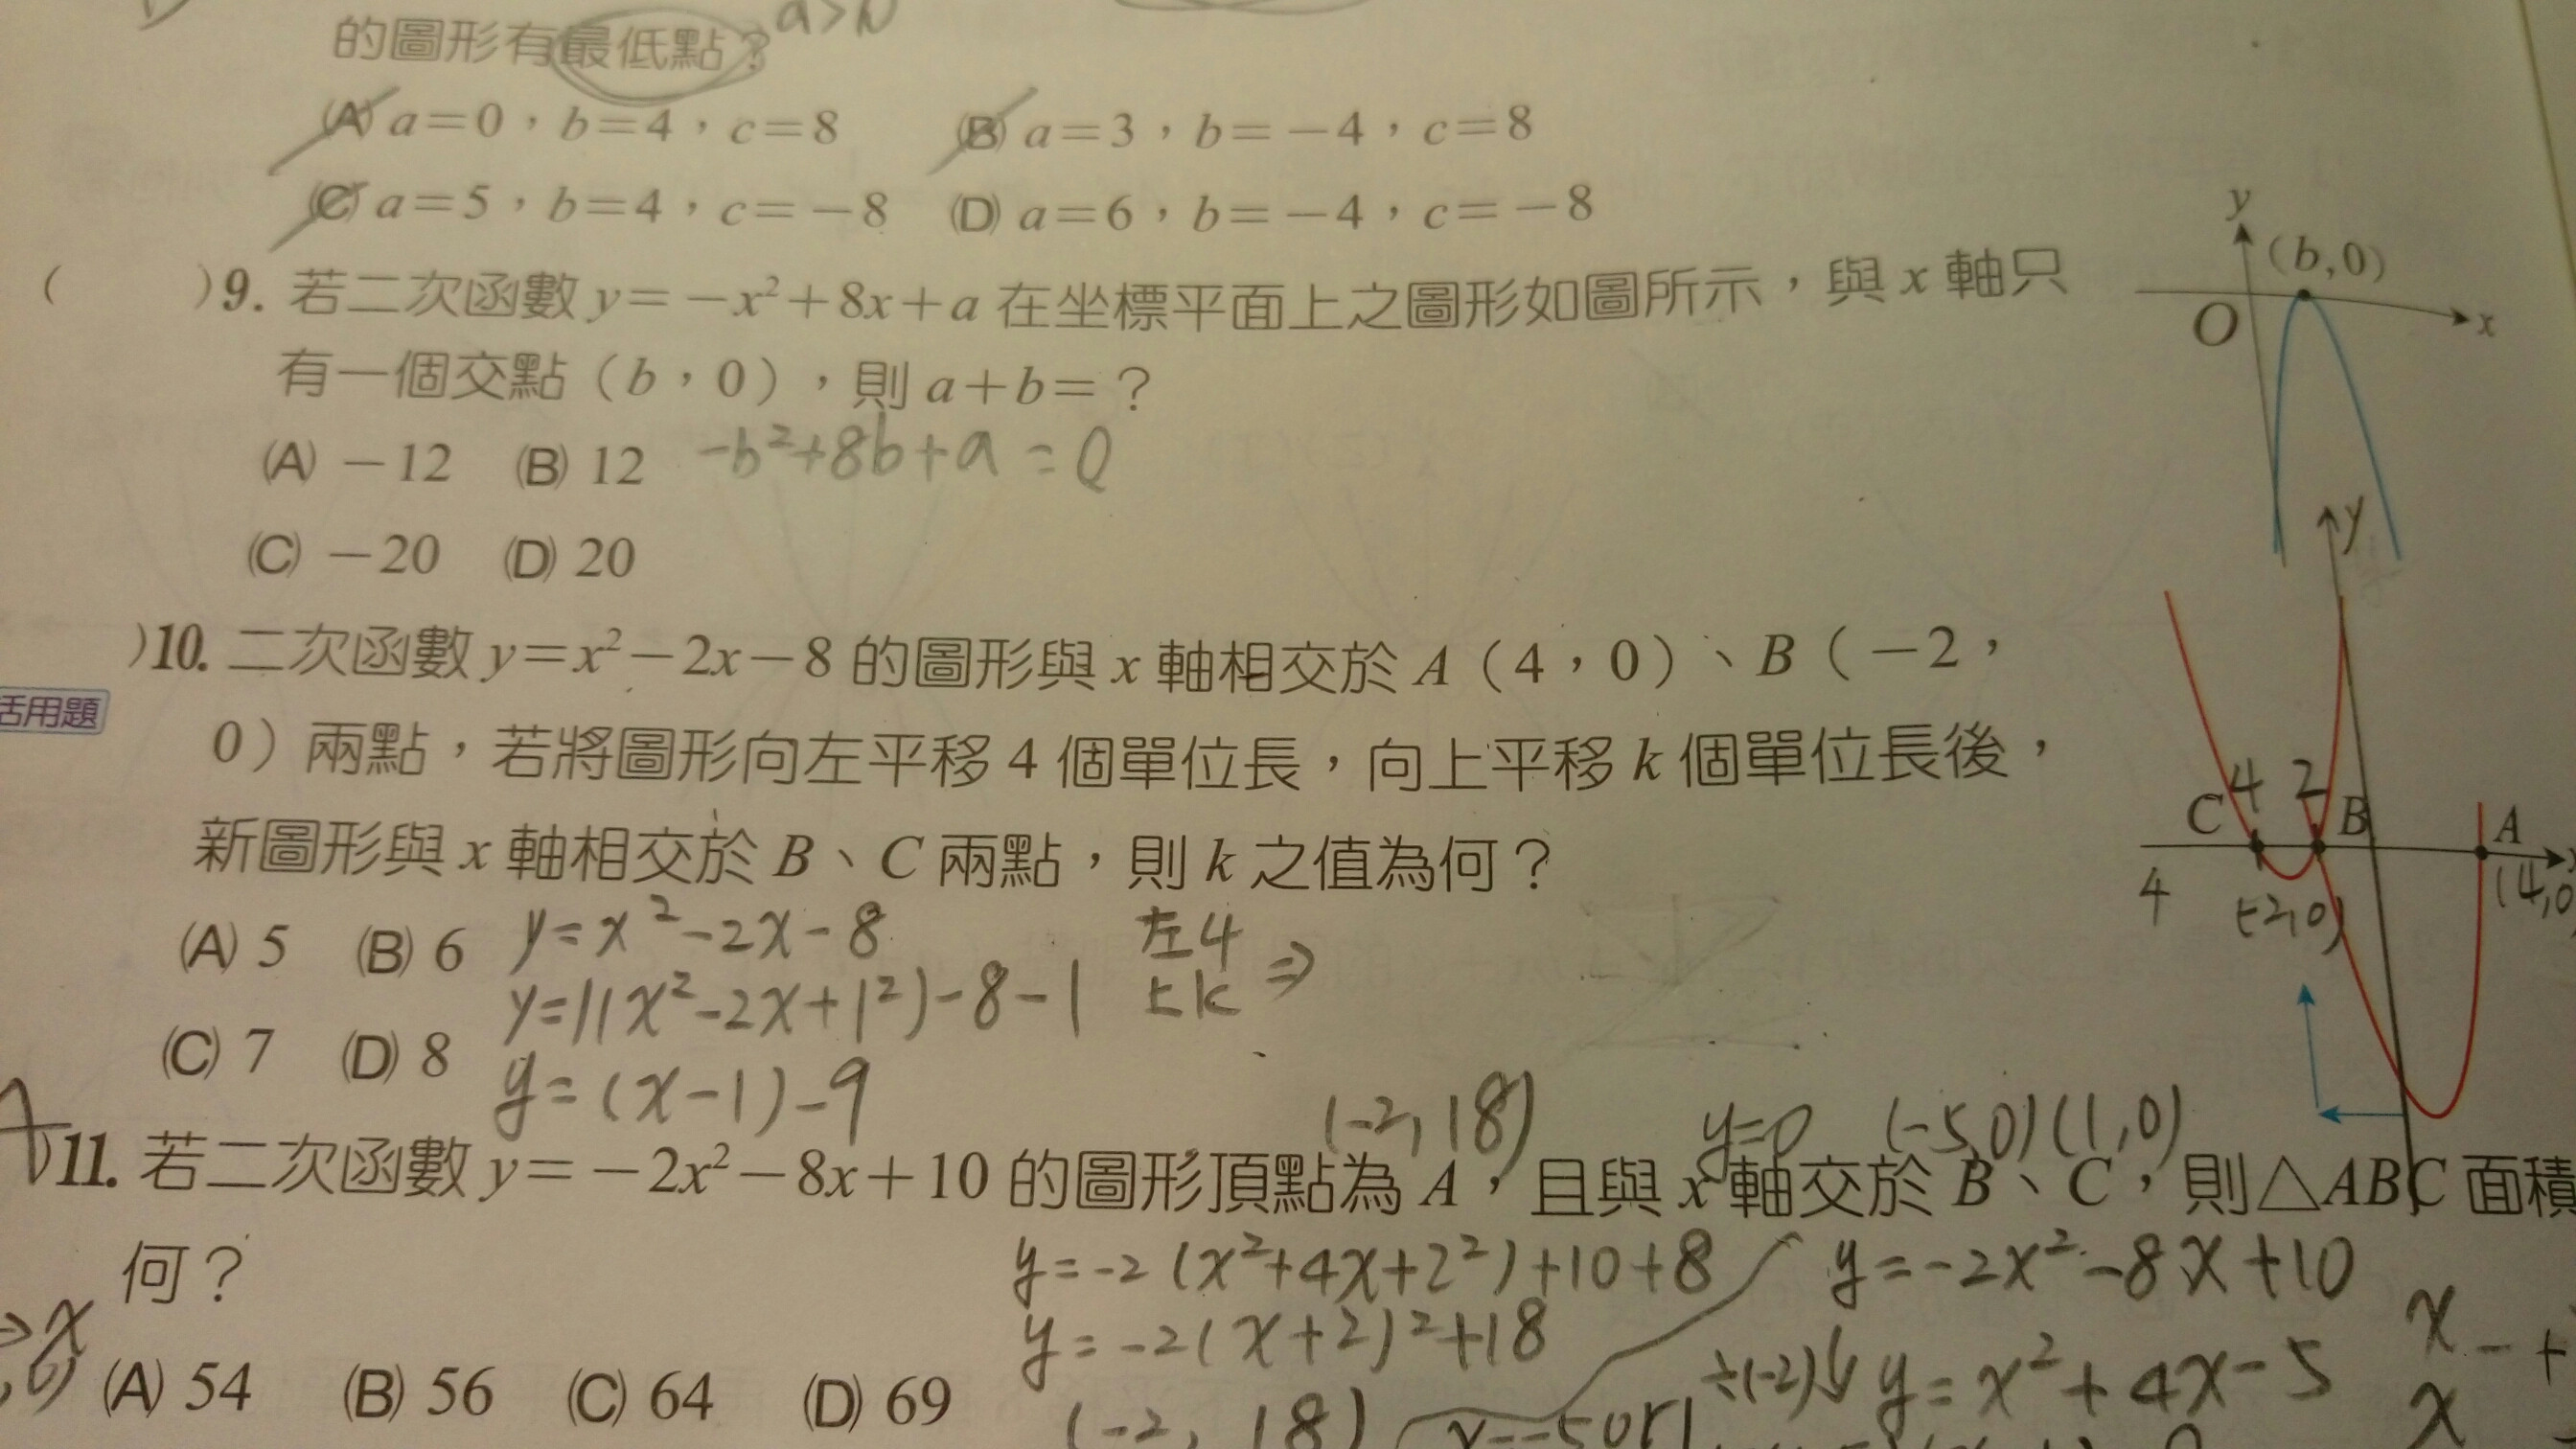 a>
的圖形有最低點?
(A) a=0，b=4，c=8 (B) a=3，b=-4，c=8
(C) a=5，b=4，c=-8 (D) a=6，b=-4，c=-8
( )9. 若二次函數 y=-x²+8x+a 在坐標平面上之圖形如圖所示，與 x 軸只
有一個交點（b，0），則 a+b=？
(A) -12 (B) 12
-b²+8b+a=0
(C) -20 (D) 20
y
(b,0)
O
x
)10. 二次函數 y=x²-2x-8 的圖形與 x 軸相交於 A（4，0）、B（-2，
活用題
0）兩點，若將圖形向左平移 4 個單位長，向上平移 k 個單位長後，
新圖形與 x 軸相交於 B、C 兩點，則 k 之值為何？
(A) 5 (B) 6
(C) 7 (D) 8
y=x²-2x-8
y=1(x²-2x+1²)-8-1
y=(x-1)-9
左4
上k ⇒
y
C 4 2 B A
4 (-2,0) (4,0
(-2,18) y=0 (-5,0)(1,0)
)11. 若二次函數 y=-2x²-8x+10 的圖形頂點為 A，且與 x 軸交於 B、C，則△ABC 面積
何？
y=-2(x²+4x+2²)+10+8
y=-2(x+2)²+18
(-2, 18)
y=-2x²-8x+10
÷(-2)↓ y=x²+4x-5
x=-5or1
x - +
x
→x
,0)
(A) 54 (B) 56 (C) 64 (D) 69